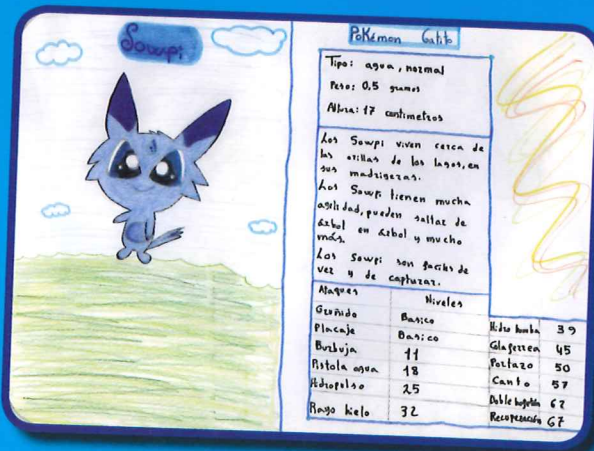 Sowpi
Pokémon Gatito
Tipo: agua, normal
Peso: 0,5 gramos
Altura: 17 centimetros
Los Sowpi viven cerca de
las orillas de los lagos, en
sus madrigeras.
Los Sowpi tienen mucha
agilidad, pueden saltar de
árbol en árbol y mucho
más.
Los Sowpi son faciles de
ver y de capturar.
Ataques Niveles
Gruñido Basico
Placaje Basico
Burbuja 11
Pistola agua 18
Hidropulso 25
Rayo hielo 32
Hidro bomba 39
45
Portazo 50
Canto 57
Doble bofetón 62
Recuperación 67